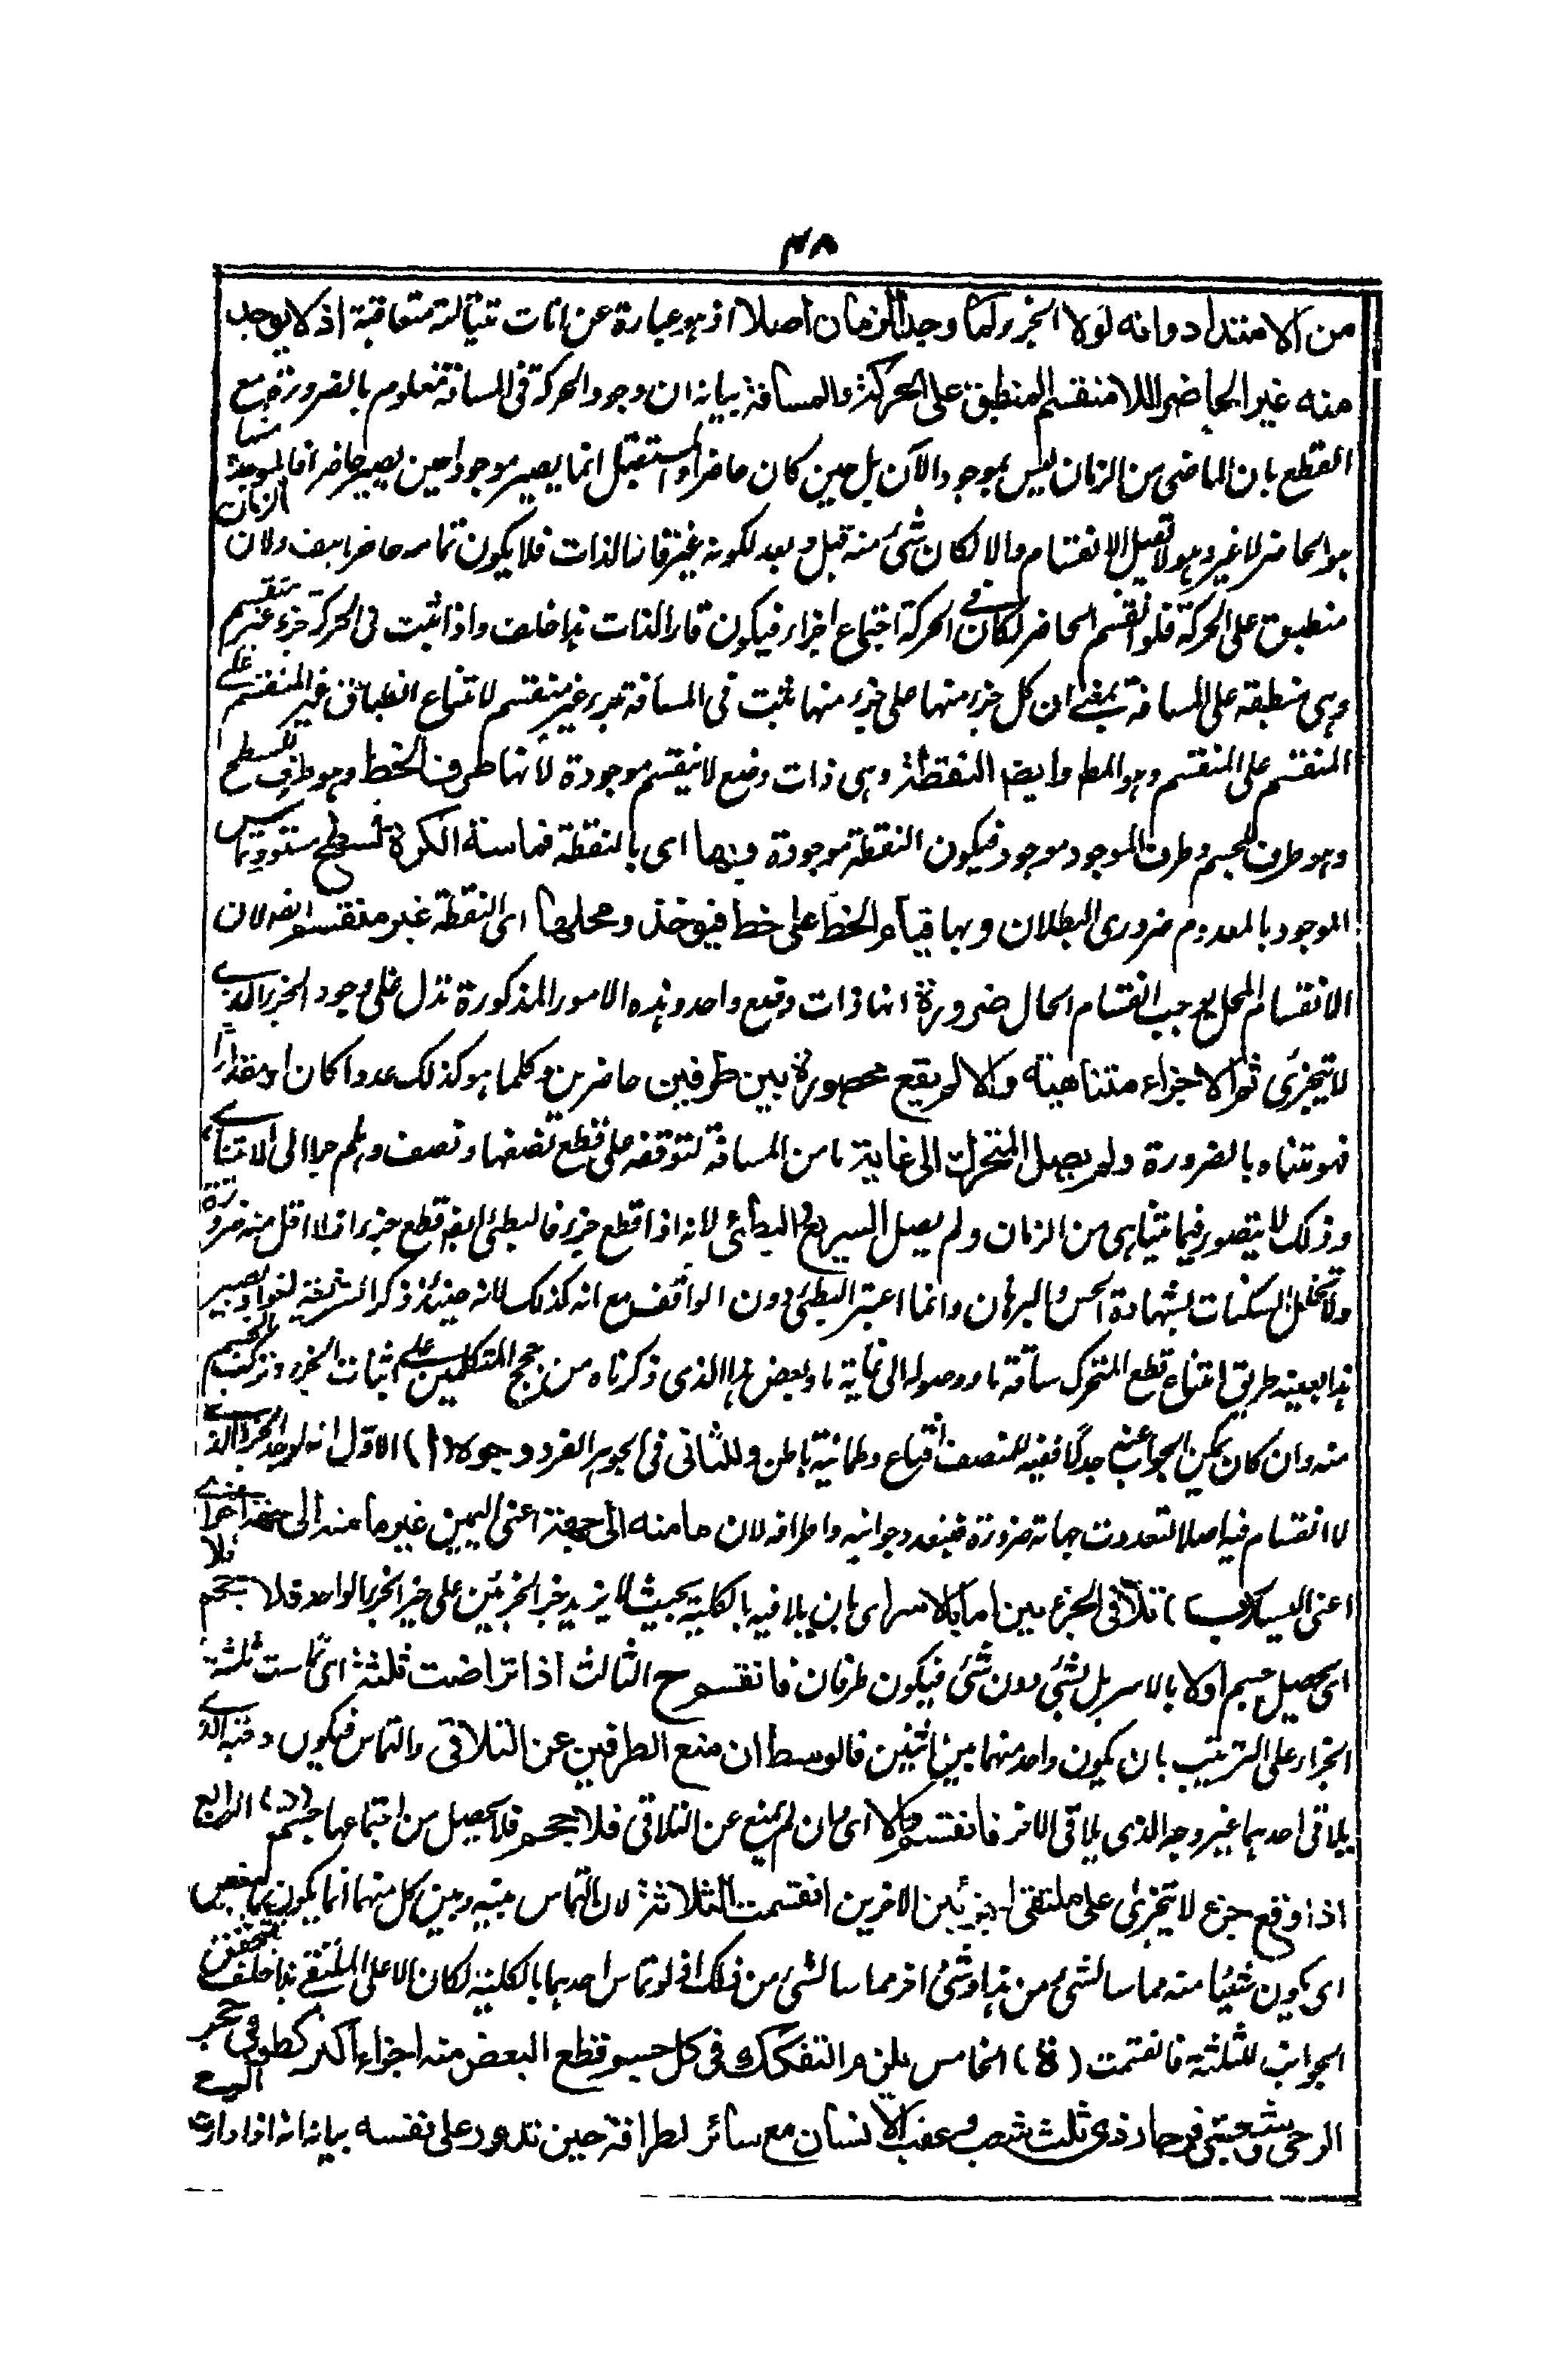 ٣٨
من الامتداد وانه لولا الجزء لما وجد الزمان اصلا اذ هو عبارة عن انات متتالية متعاقبة اذ لا يوجد
منه غير الحاضر اللا منقسم المنطبق على الحركة والمسافة بيانه ان وجود الحركة فى المسافة معلوم بالضرورة مع
القطع بان الماضى من الزمان ليس بموجود الآن بل حين كان حاضرا والمستقبل انما يصير موجودا حين يصير حاضرا فالموجود منها
هو الحاضر لا غير وهو لا يقبل الانقسام والا لكان شئ منه قبل وبعد لكونه غير قار الذات فلا يكون تمامه حاضرا هف ولان الزمان
منطبق على الحركة فلو انقسم الحاضر لكان فى الحركة اجتماع اجزاء فيكون قار الذات هذا خلف واذا ثبت فى الحركة جزء غير منقسم
وهى منطبقة على المسافة بمعنى ان كل جزء منها على جزء منها ثبت فى المسافة جزء غير منقسم لامتناع انطباق غير المنقسم على
المنقسم على المنقسم وهو المط وايضا النقطة وهى ذات وضع لا ينقسم موجودة لأنها طرف الخط وهو طرف للسطح
وهو طرف للجسم وطرف الموجود موجود فيكون النقطة موجودة وبها اى بالنقطة مماسة الكرة لسطح مستو وتماس
الموجود بالمعدوم ضرورى البطلان وبها قيام الخط على خط فيؤخذ ومحلها اى النقطة غير منقسم ايضه لان
الانقسام المحل يوجب انقسام الحال ضرورة انها ذات وضع واحد وهذه الامور المذكورة تدل على وجود الجزء الذى
لا يتجزى ثم الاجزاء متناهية والا لم يقع محصورة بين طرفين حاضرين وكلما هو كذلك عددا كان او مقدارا
فهو متناه بالضرورة ولم يصل المتحرك الى غاية ما من المسافة لتوقفه على قطع نصفها ونصف وهلم جرا الى لا تناهى
وذلك لا يتصور فيما يتناهى من الزمان ولم يصل السريع البطئ لانه اذا قطع جزء فالبطئ ايضه قطع جزء اذ لا اقل منه ضرورة
ولا تخلل السكنات بشهادة الحس والبرهان وانما اعتبر البطئ دون الواقف مع انه كذلك لانه حينئذ ذكر السرعة لغوا ويصير
هذا بعينه طريق امتناع قطع المتحرك مسافة ما ووصوله الى غاية ما وبعض هذا الذى ذكرناه من حجج المتكلمين على اثبات الجزء وتركب الجسم
منه وان كان يمكن الجواب عنه جدلا ففيه للمنصف اقناع وطمانية باطن وللثانى فى الجوهر الفرد وجوه (ا) الاول انه لو وجد الجزء الذى
لا انقسام فيه اصلا لتعددت جهاته ضرورة فيتعدد جوانبه واطرافه لان ما منه الى جهة اعنى اليمين غير ما منه الى جهة اخرى
اعنى اليسار (ب) تلاقى الجزء بين اما بالاسر اى بان يلاقيه بالكلية بحيث لا يزيد حيز الجزئين على حيز الجزء الواحد فلا حجم فلا
اى يحصل جسم اولا بالاسر بل لشئ دون شئ فيكون طرفان فانقسم ح الثالث اذا تراضت ثلثة اى تماست ثلثة
اجزاء على الترتيب بان يكون واحد منهما بين اثنين فالوسط ان منع الطرفين عن التلاقى والتماس فيكون وجه الذى
يلاقى احدهما غير وجه الذى يلاقى الاخر فانقسم والا اى وان لم يمنع عن التلاقى فلا حجم فلا يحصل من اجتماعها جسم (د) الرابع
اذا وقع جزء لا يتجزى على ملتقى جزئين الاخرين انقسمت الثلاثة لان التماس بينه وبين كل منهما انما يكون بالبعض
اى يكون شيئا منه مماسا لشئ من هذا وشئ اخر مماسا لشئ من ذلك اذ لو تماس احدهما بالكلية لكان لا على الملتقى هذا خلف فتحقق
الجوانب للثلثة فانقسمت (ه) الخامس يلزم التفكك فى كل جسم وقطع البعض منه اجزاء اكثر كطوفى حجر
الرحى وشعبتى فرجار ذى ثلث شعب وعقب الانسان مع سائر اطرافه حين تدور على نفسه بيانه انه اذا دارت